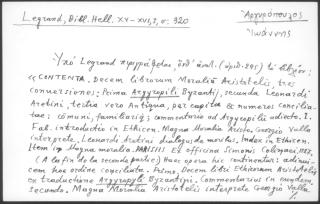 Legrand, Bibl. Hell. XV-XVI, 3, σ. 320
Ἀργυρόπουλος
Ἰωάννης
Ὑπὸ Legrand περιγράφεται ὑπ' ἀριθ. (ἀριθ. 295) τὸ βιβλίον:
«CONTENTA. Decem librorum Moralium Aristotelis, tres
conversiones: Prima Argyropili Byzantij, secunda Leonardi
Aretini, tertia vero Antiqua, per capita & numeros concilia-
tae: communi, familiariq; commentario ad Argyropilum adiecto. I.
Fab. introductio in Ethicen. Magna Moralia Aristo. Georgio Valla
interprete. Leonardi Aretini dialogus de moribus. Index in Ethicen.
Item in Magna moralia. PARISIIS Ex officina Simonis Colinaei
(A la fin de la seconde partie) Haec opera hic continentur: adinvi-
cem hoc ordine coaptata. Primo, Decem libri Ethicorum Aristotelis
ex traductione Argyropili Byzantij. Commentarius in eosdem.
secundo. Magna Moralia Aristotelis interprete Georgio Valla